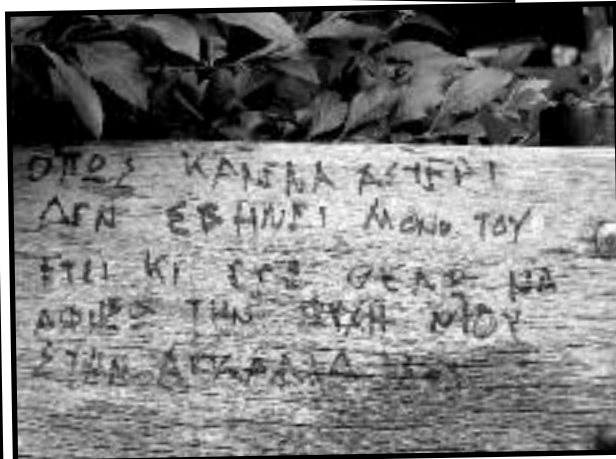 ΟΠΩΣ ΚΑΝΕΝΑ ΑΣΤΕΡΙ
ΔΕΝ ΣΒΗΝΕΙ ΜΟΝΟ ΤΟΥ
ΕΤΣΙ ΚΙ ΕΓΩ ΘΕΛΩ ΝΑ
ΑΦΗΣΩ ΤΗΝ ΨΥΧΗ ΜΟΥ
ΣΤΗΝ ΑΓΚΑΛΙΑ ΣΟΥ